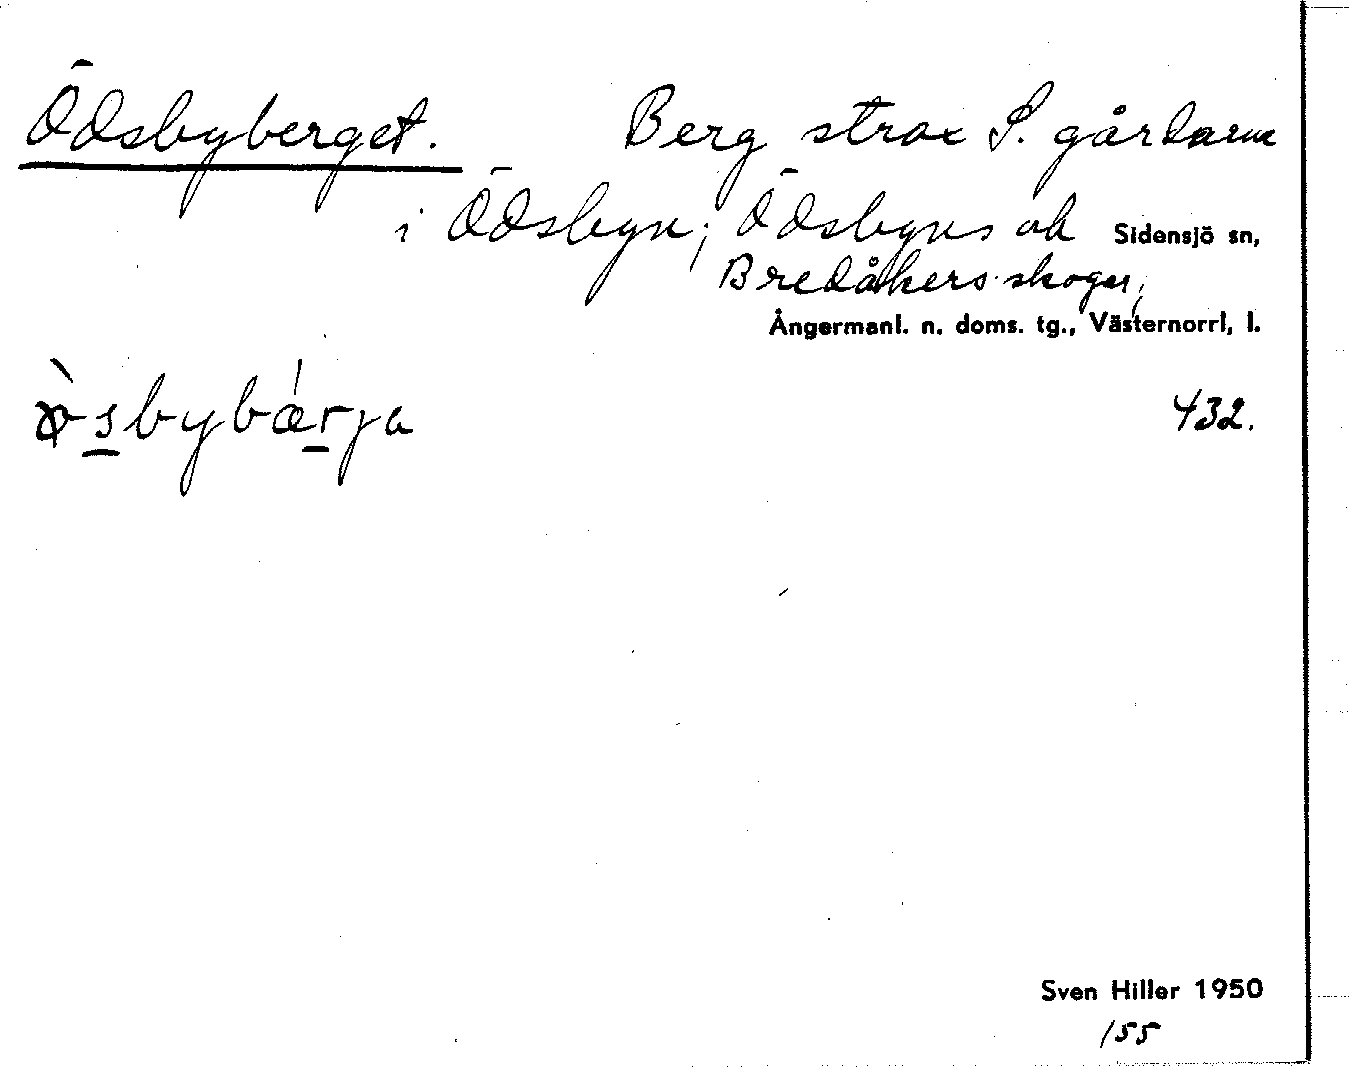 Ödsbyberget. Berg strax S. gårdarna
i Ödsbyn; Ödsbyns och Sidensjö sn,
Bredåkers skogar;
Ångermanl. n. doms. tg., Västernorrl, l.
ø̀s̲bybær̲ja 432.
Sven Hiller 1950
155